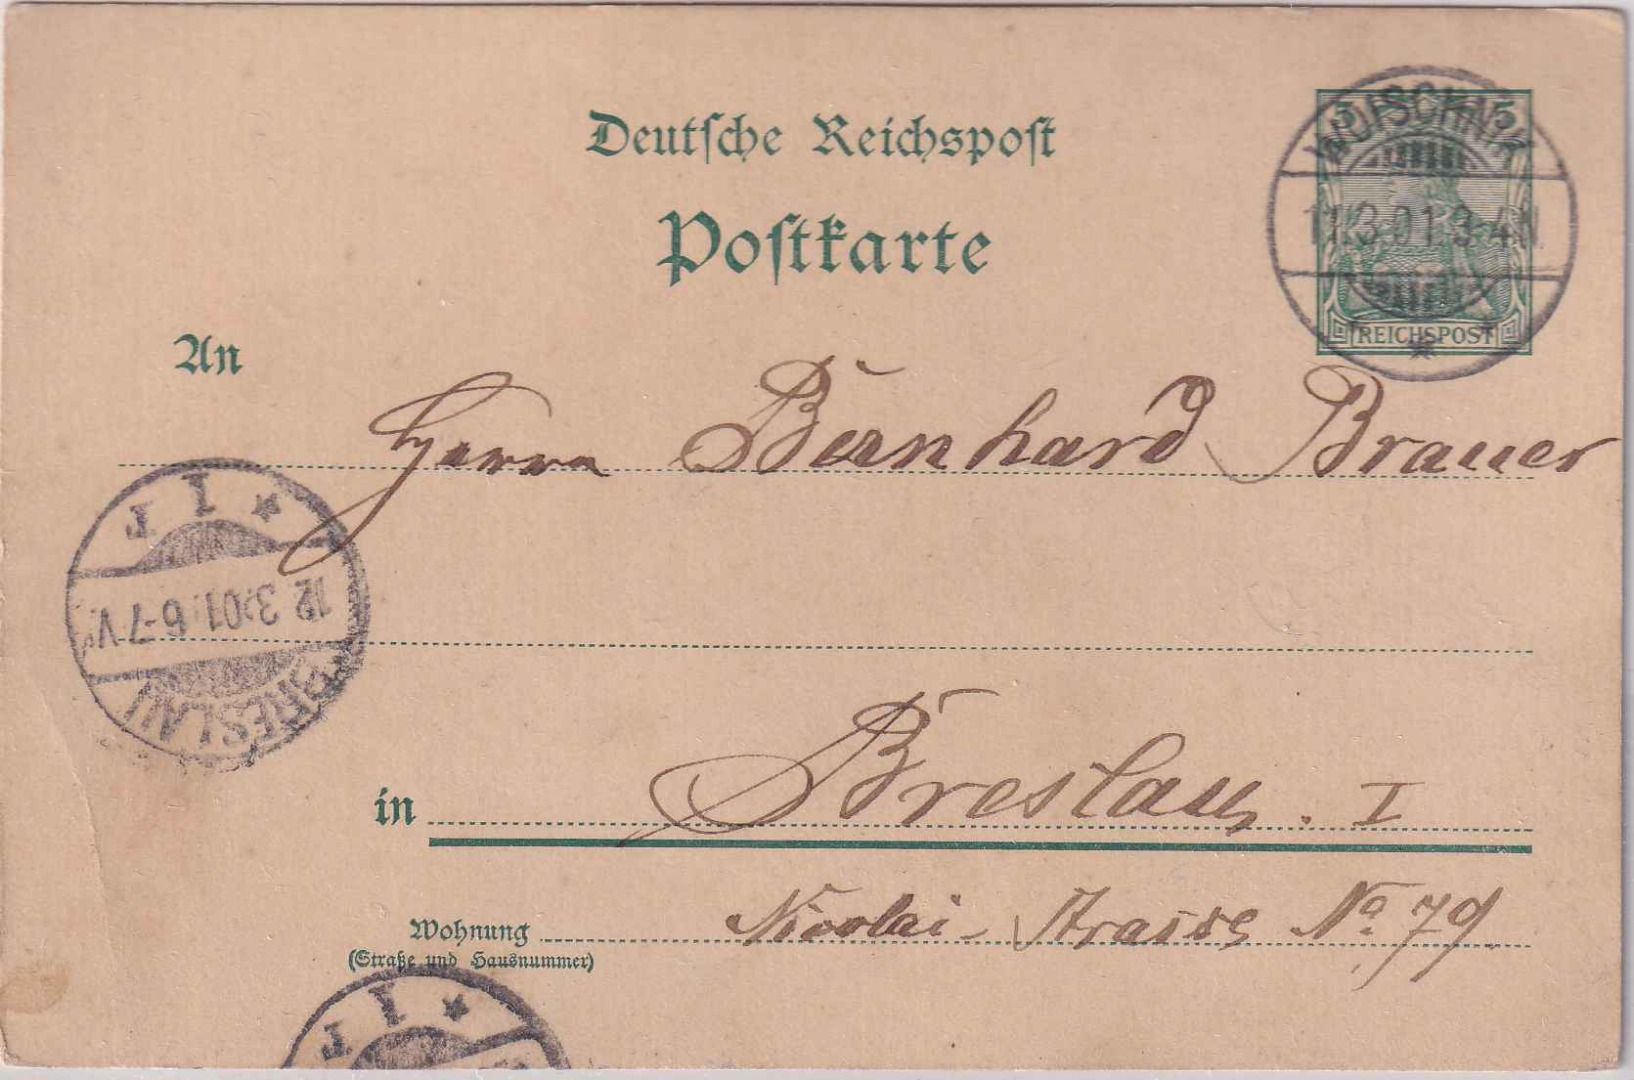 Deutsche Reichspost
Postkarte
5 5
REICHSPOST
WUTSCHNIK
11.3.01.3-4N.
An
Herrn Bernhard Brauer
* 1 r
12.3.01.6-7.V.
BRESLAU
in Breslau. I
Wohnung Nicolai-Strasse No. 79.
(Straße und Hausnummer)
* 1 r